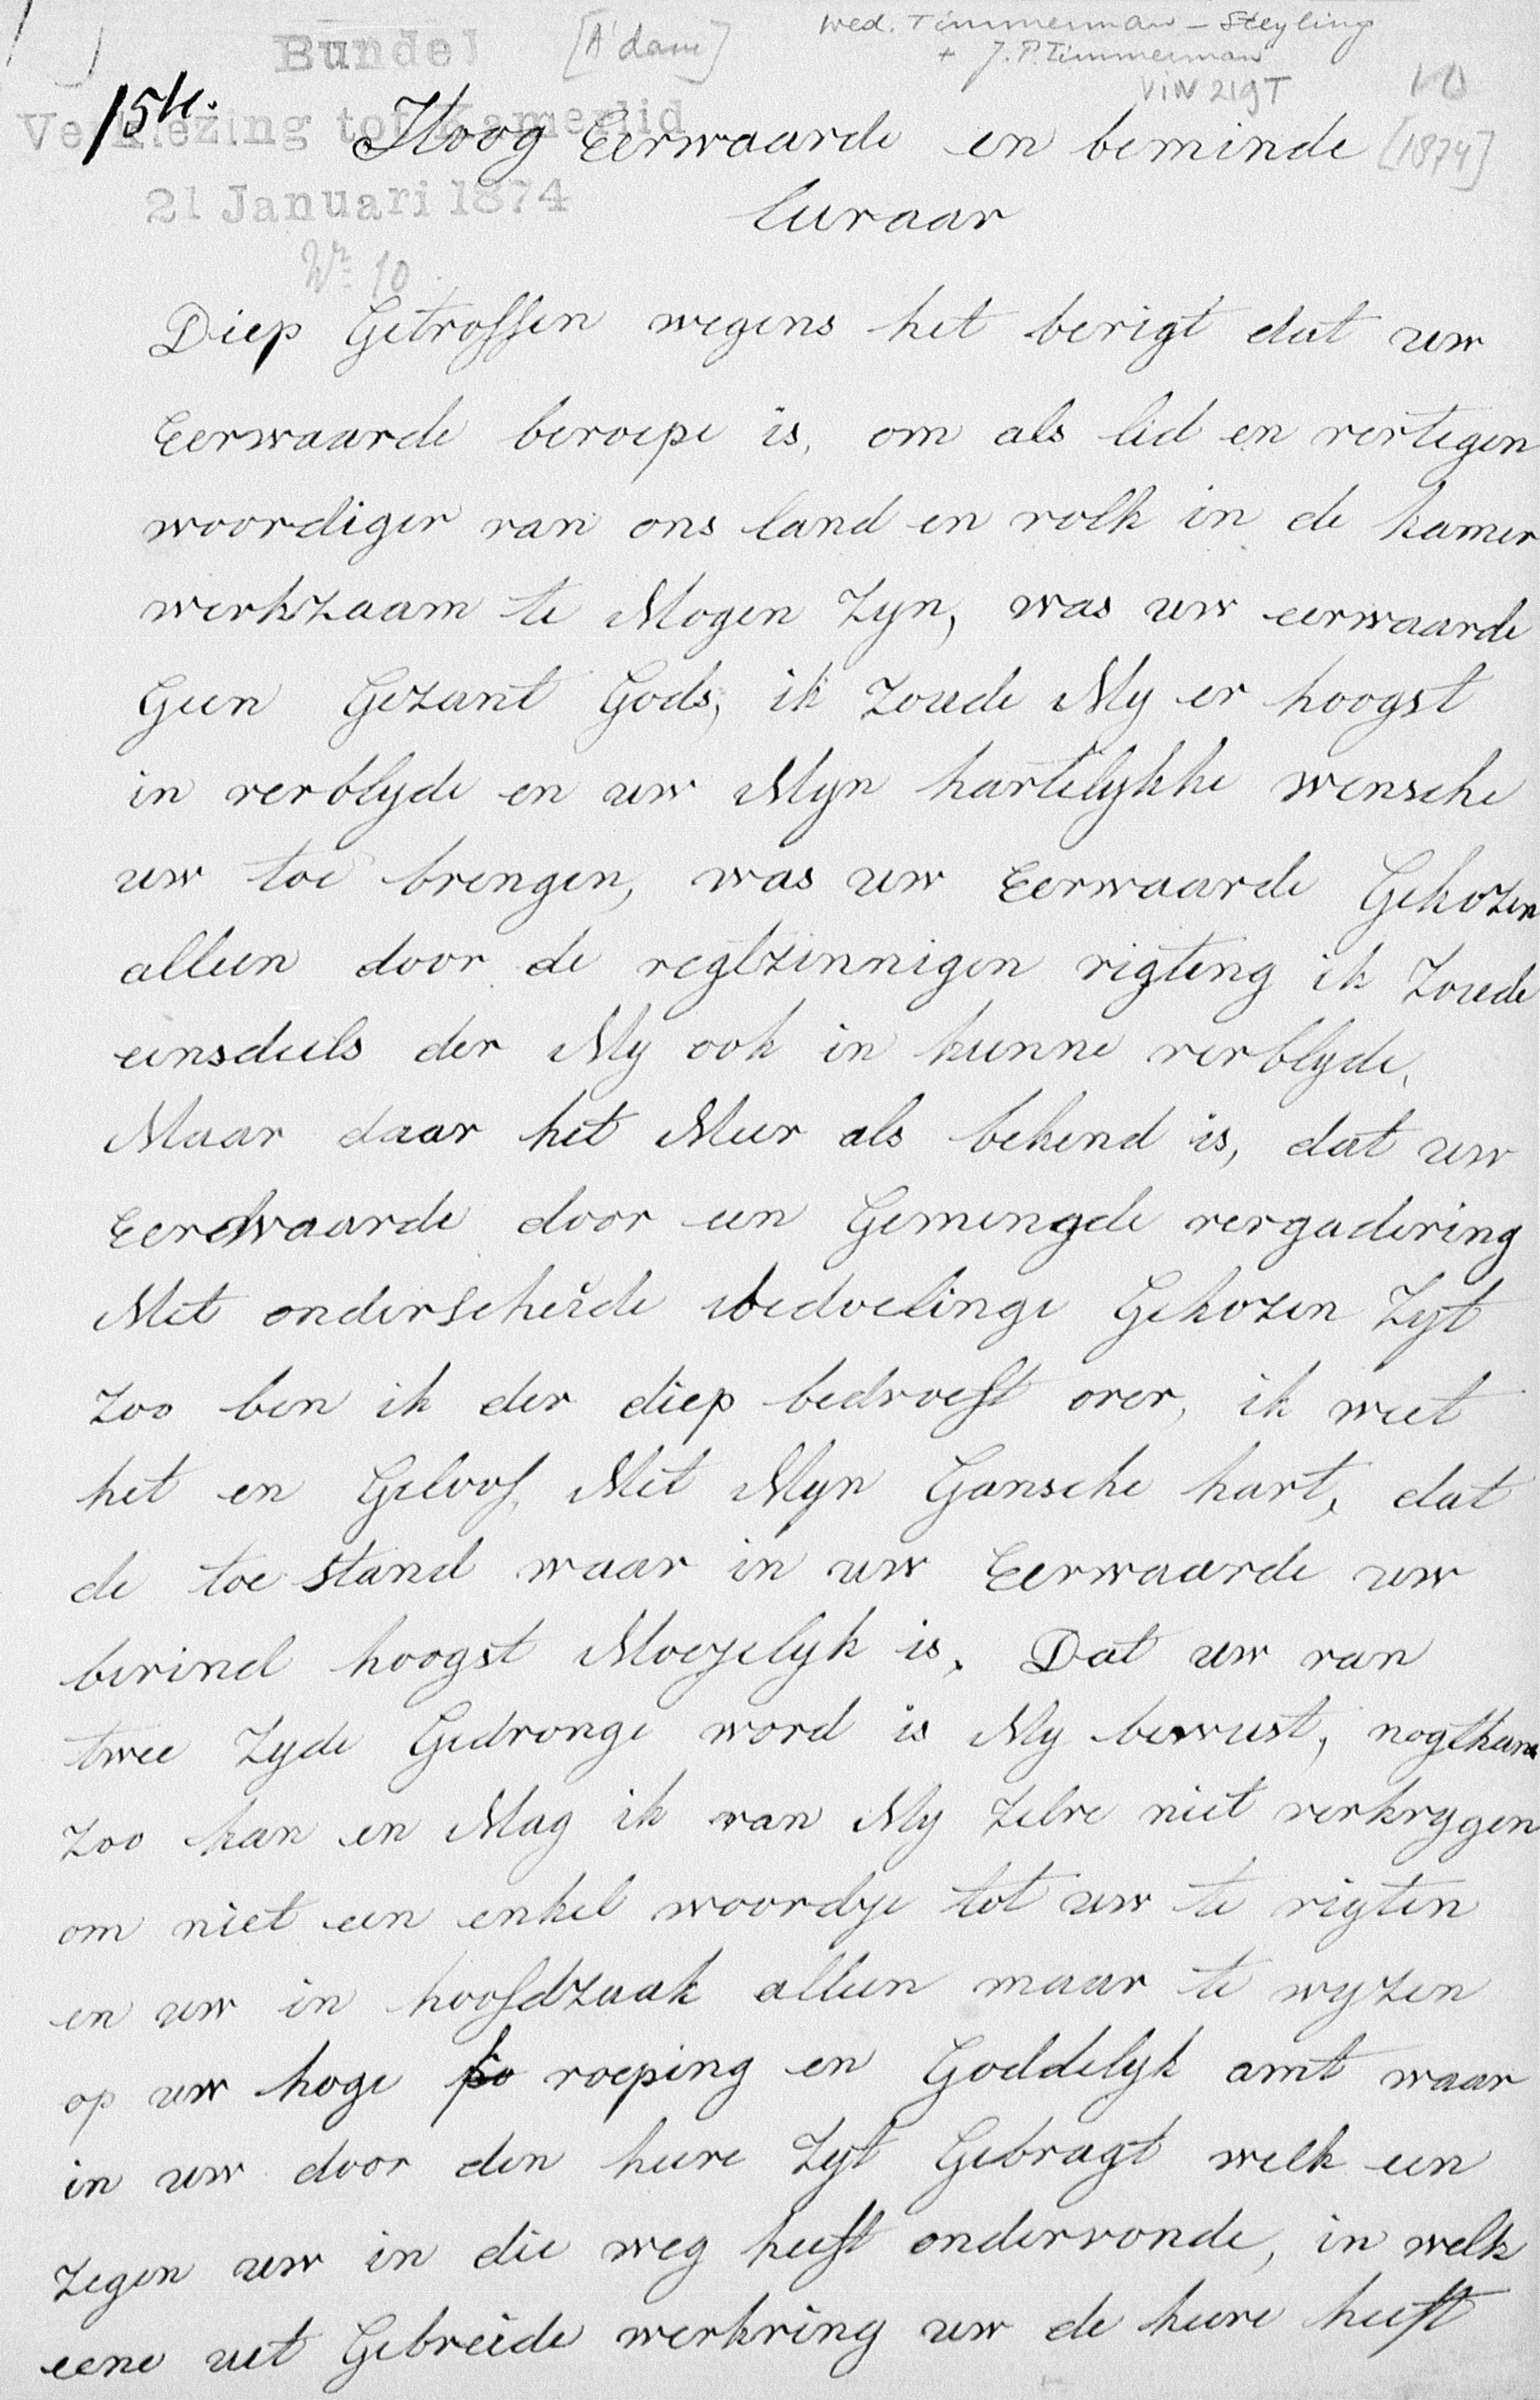 Bundel [A'dam] Wed. Timmerman - Steyling
+ J. P. Timmerman
VIN 219T 10
15de. Verkiezing tot Kamerlid
Hoog Eerwaarde en beminde [1874]
21 Januari 1874
Luraar
Nr 10.
Diep Getroffen wegens het berigt dat uw
Eerwaarde beroepe is, om als lid en vertegen
woordiger van ons land en volk in de kamer
werkzaam te Mogen Zyn, was uw eerwaarde
Geen Gezant Gods, ik Zoude My er hoogst
in verblyde en uw Myn hartelykke wensche
uw toe brengen, was uw Eerwaarde Gekozen
alleen door de regtzinnigen rigting ik Zoude
eensdeels der My ook in kunne verblyde,
Maar daar het Meer als bekend is, dat uw
Eerdwaarde door een Gemengde vergadering
Met onderscheide bedoelinge Gekozen Zyt
Zoo ben ik der diep bedroeft over, ik weet
het en Geloof Met Myn Gansche hart, dat
de toe stand waar in uw Eerwaarde uw
bevind hoogst Moeyelyk is. Dat uw van
twee Zyde Gedronge word is My bewust, nogthans
Zoo kan en Mag ik van My Zelve niet verkrygen
om niet een enkel woordje tot uw te rigten
en uw in hoofdzaak alleen maar te wyzen
op uw hoge roeping en Goddelyk amt waar
in uw door den heere Zyt Gebragt welk een
Zegen uw in die weg heeft ondervonde, in welk
eene uit Gebreide werkring uw de heere heeft